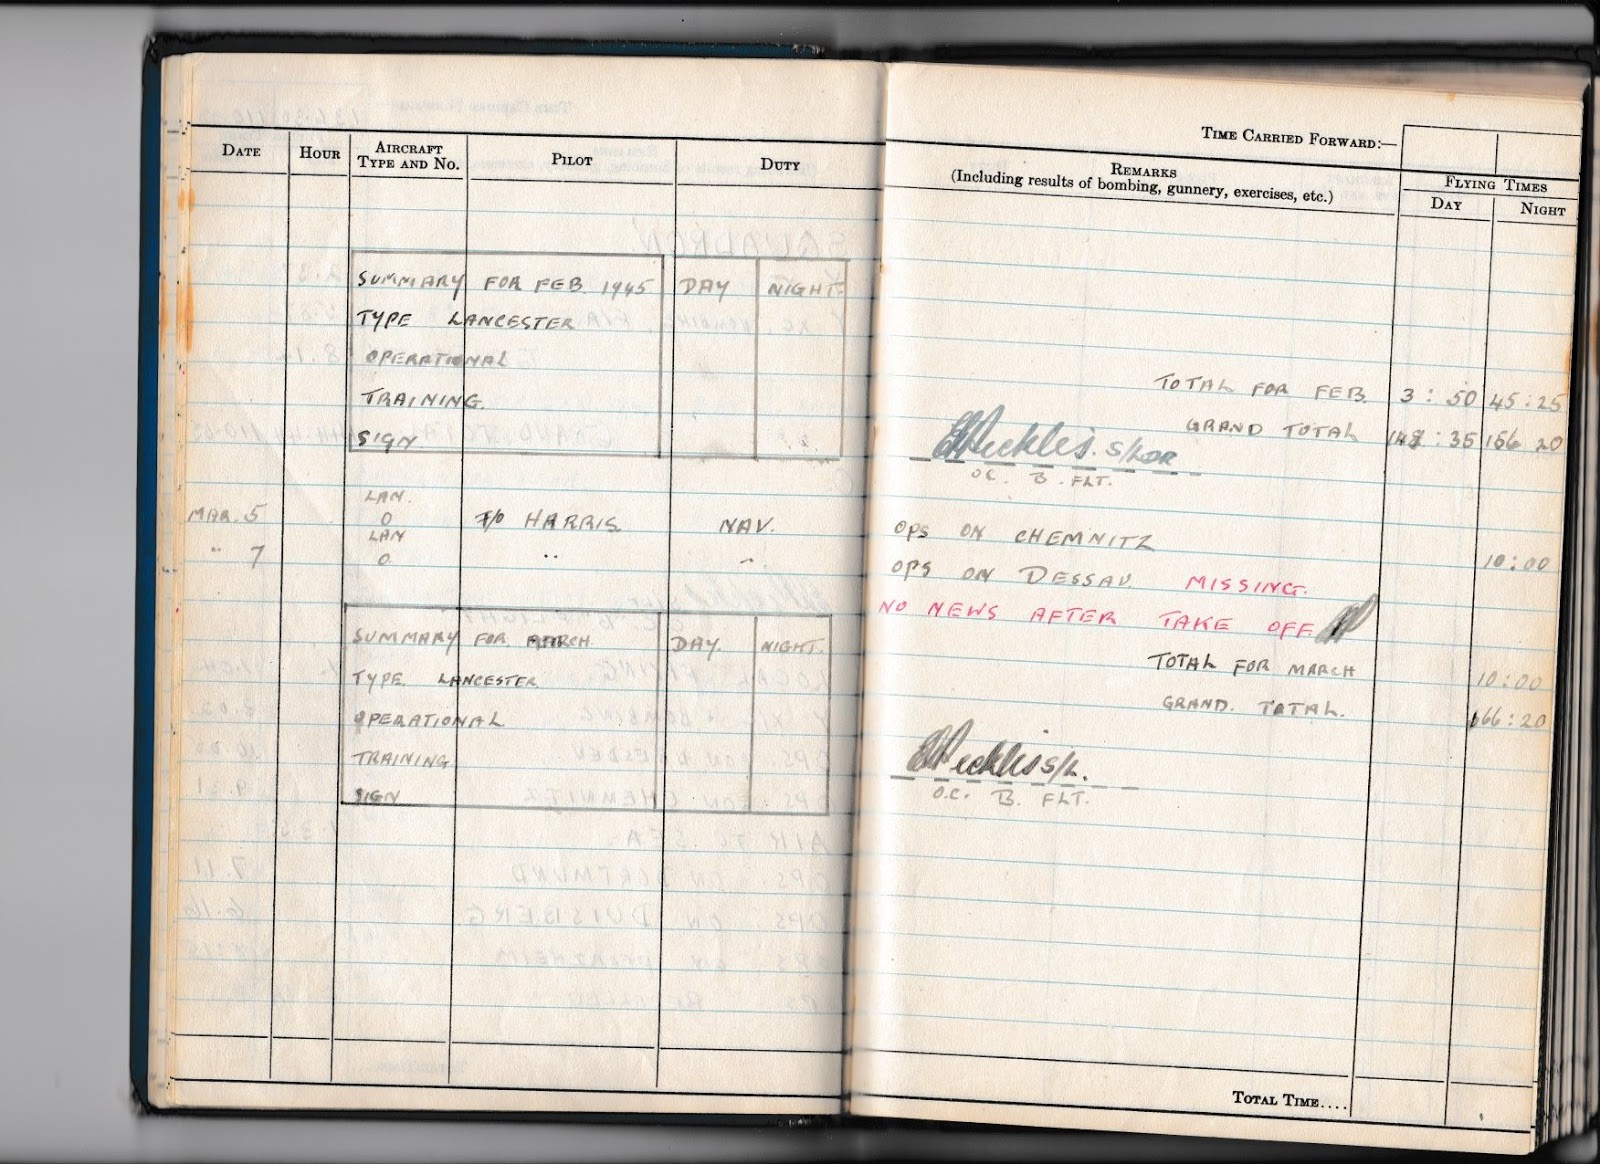 DATE HOUR AIRCRAFT TYPE AND NO. PILOT DUTY
SUMMARY FOR FEB. 1945 DAY NIGHT.
TYPE LANCESTER
OPERATIONAL
TRAINING.
SIGN
LAN.
MAR. 5 O F/O HARRIS NAV.
LAN
" 7 O " "
SUMMARY FOR MARCH DAY. NIGHT.
TYPE. LANCESTER
OPERATIONAL
TRAINING.
SIGN
TIME CARRIED FORWARD:—
REMARKS
(Including results of bombing, gunnery, exercises, etc.)
FLYING TIMES
DAY NIGHT
TOTAL FOR FEB. 3:50 45:25
GRAND TOTAL :35 156 20
S/LDR
OC. B. FLT.
OPS ON CHEMNITZ 10:00
OPS ON DESSAU. MISSING.
NO NEWS AFTER TAKE OFF
TOTAL FOR MARCH 10:00
GRAND. TOTAL. 166:20
S/L.
O.C. B. FLT.
TOTAL TIME....